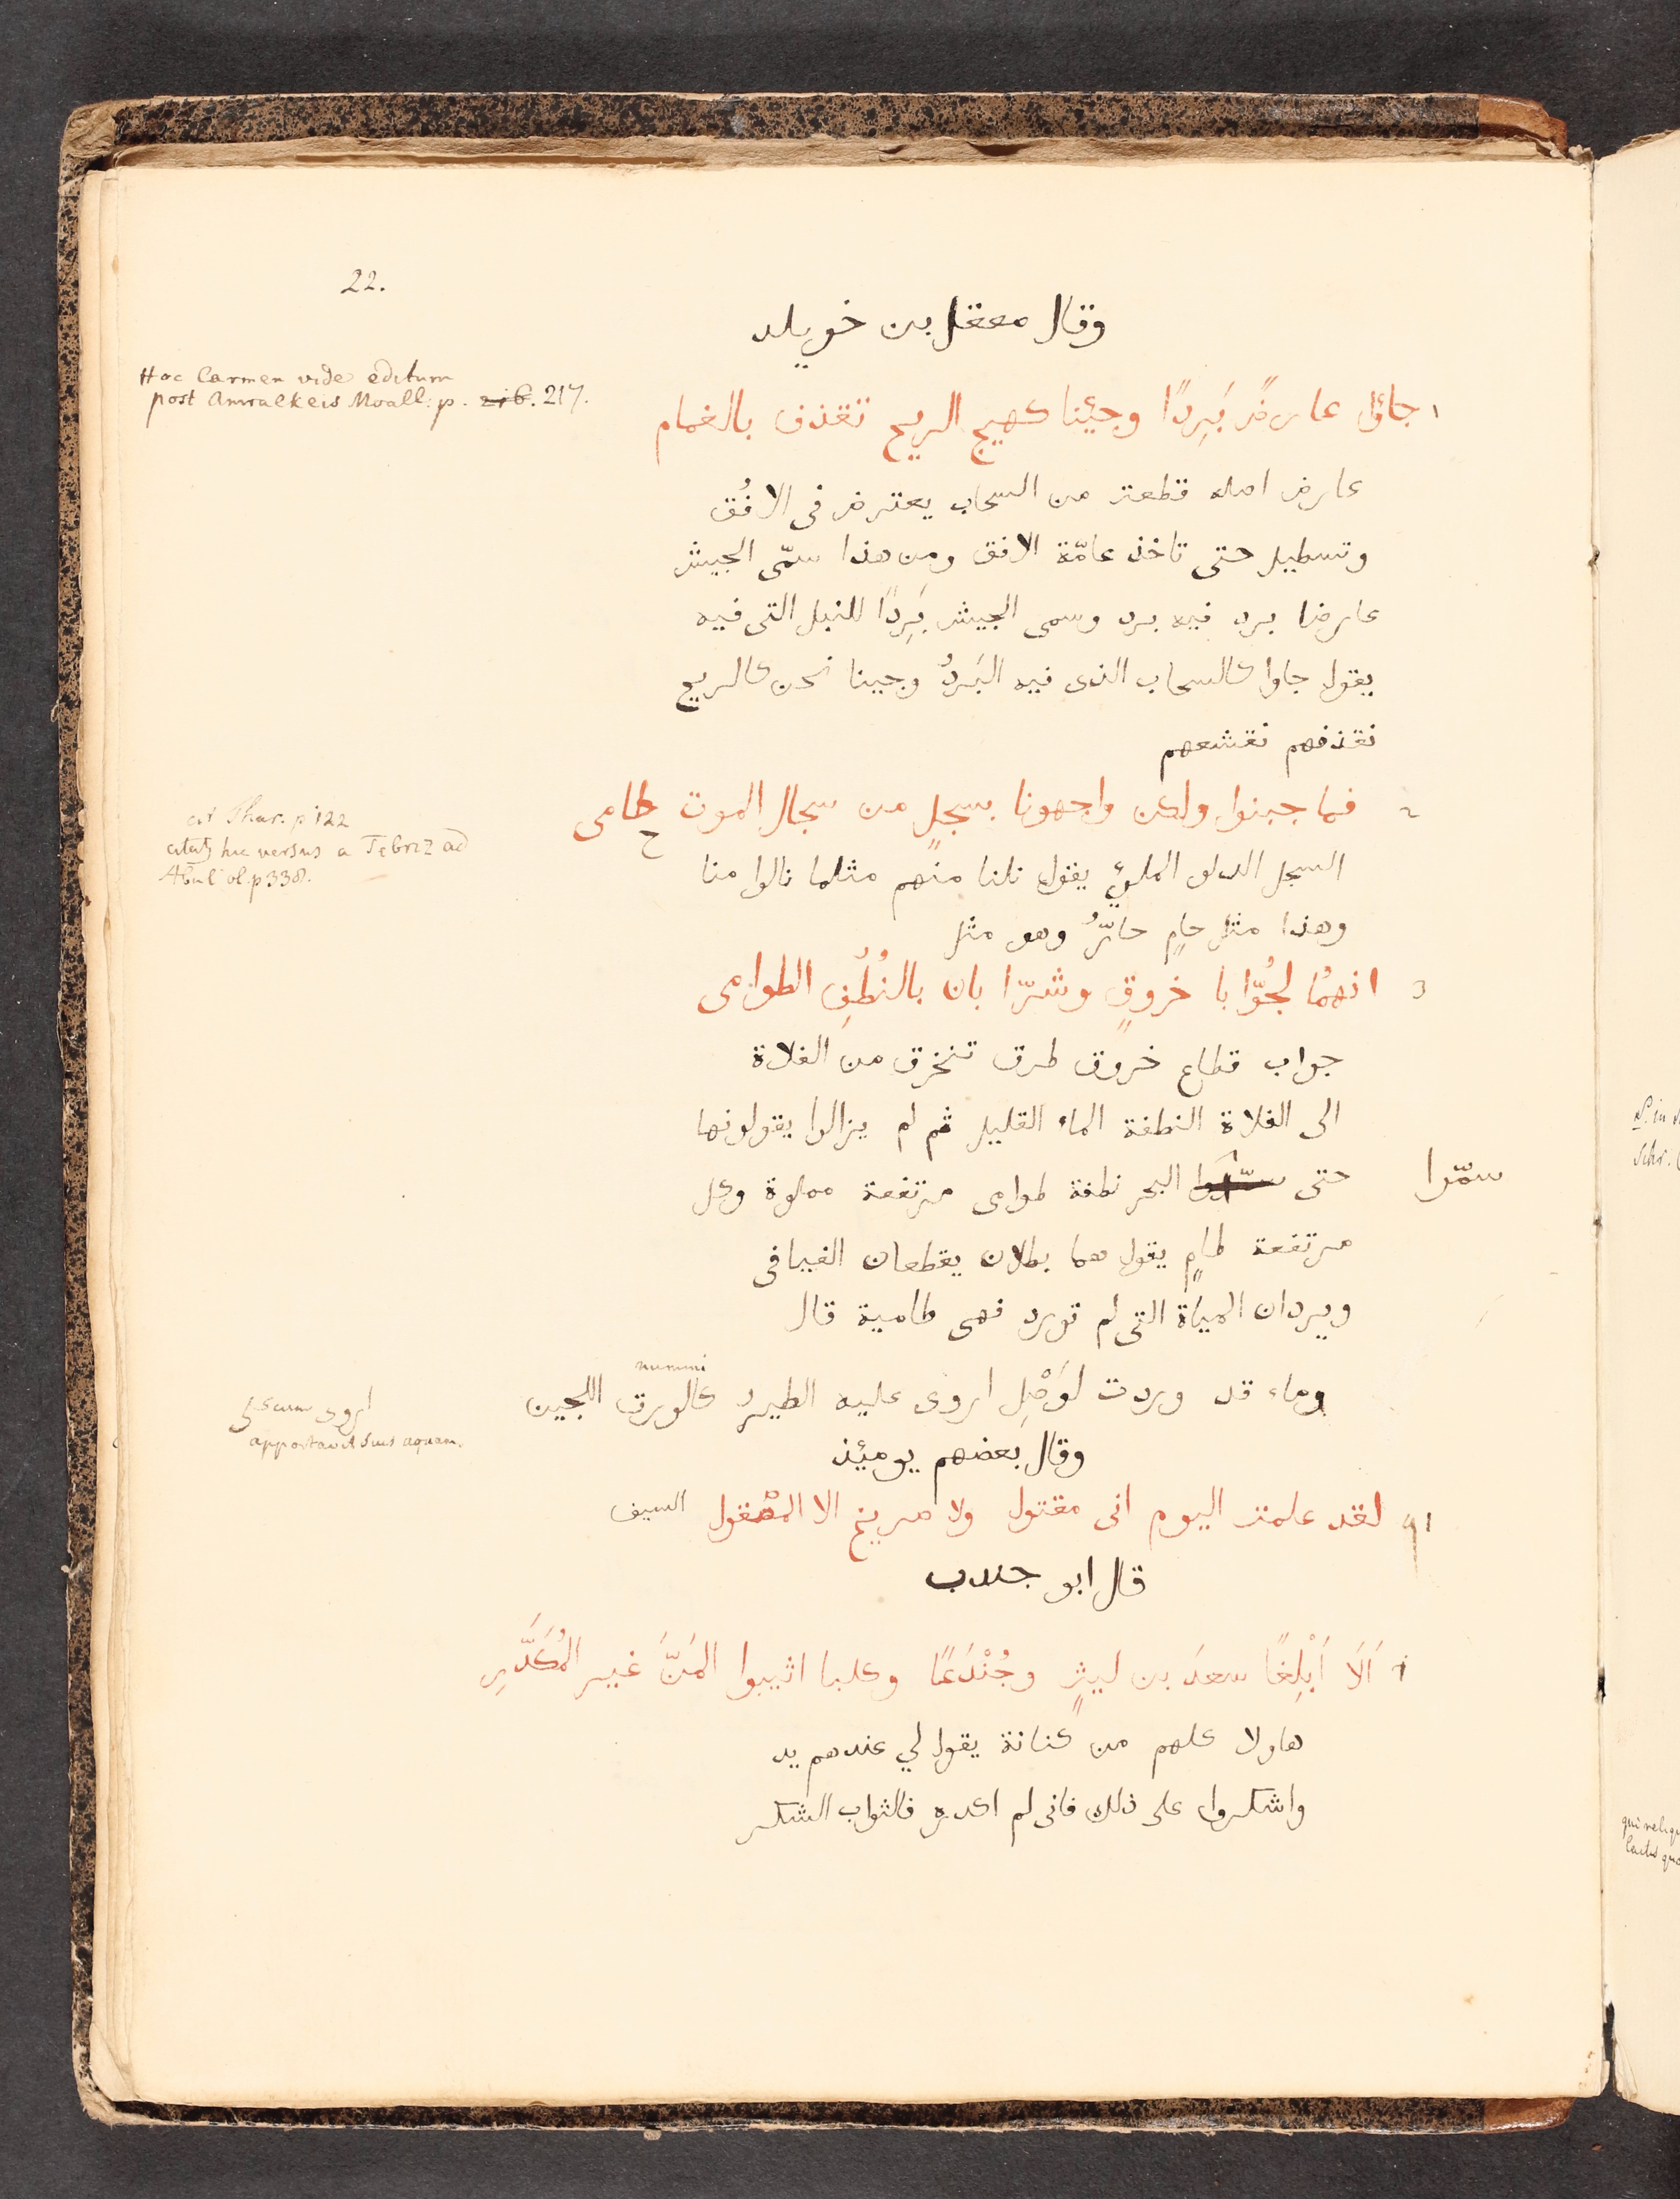 22.
وقال معقل بن خويلد
Hoc Carmen vide editum
post Amralkeis Moall: p. 216. 217.
١ جاؤا عارضٌ بَرِدًا وجئنا كهيج الريح تقذف بالغمام
عارض اصله قطعة من السحاب يعترض فى الافُق
وتسطيل حتى تاخذ عامّة الافق ومن هذا سمّى الجيش
عارضا برد فيه برد وسمى الجيش بَرِدًا للنبل التى فيه
يقول جاوا كالسحاب الذى فيه البَرَدُ وجينا نحن كالريح
نقذفهم نقشعهم
٢ فما جبنوا ولكن واجهونا بسجلٍ من سجال الموت حامى
cit Thar. p 122
citatq hic versus a Tebriz ad
Abul ol. p 338.
السجل الدلو الملوٍّ يقول نلنا منهم مثلما نالوا منا
وهذا مثل حامٍ حارٌّ وهو مثل
3 انهمُا لجُوّا با خروقٍ وشرّا بان بالنُطُفِ الطوامى
جواب قطاع خروق طرق تنخرق من الفلاة
الى الفلاة النطفة الماء القليل ثم لم يزالوا يقولونها
حتى البحر نطفة طوامى مرتفعة مملوة وكل
سمّوا
مرتفعة طامٍ يقول هما بطلان يقطعان الفيافى
ويردان المياة التى لم تورد فهى طامية قال
nummi
وماء قد وردت لوَصْلِ اروى عليه الطير كالورق اللجين
اروى cum
apportavit suis aquam.
وقال بعضهم يومئذ
١ لقد علمت اليوم انى مقتول ولا صريخ الا المصْقول السيف
قال ابو جندب
١ اَلَا اَبْلِغًا سعدَ بن ليثٍ وجُنْدَعًا وكلبا اثيبوا المَنَّ غير المُكَدَّرِ
هاولا كلهم من كنانة يقول لي عندهم يد
واشكروا على ذلك فانى لم اكدره فالثواب الشكر